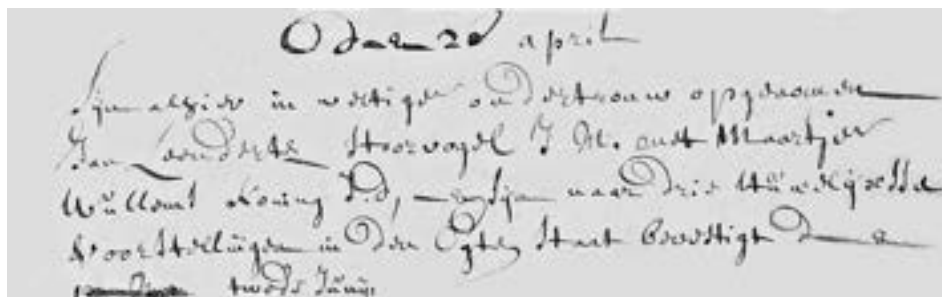 Den 20 april
Sijn alhier in wettige ondertrouw opgenomen
Jan Leenderts Stoorvogel J M. endt Maartje
Willems Koning J.d, en sijn naar drie Huwelijxsse
voorstellingen in den Egten Staat bevestigt den
twede Junij